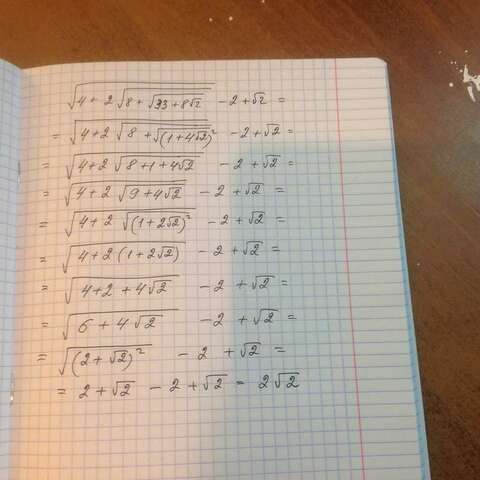 √(4 + 2√(8 + √(33 + 8√2))) - 2 + √2 =
= √(4 + 2√(8 + √((1 + 4√2)²))) - 2 + √2 =
= √(4 + 2√(8 + 1 + 4√2)) - 2 + √2 =
= √(4 + 2√(9 + 4√2)) - 2 + √2 =
= √(4 + 2√((1 + 2√2)²)) - 2 + √2 =
= √(4 + 2(1 + 2√2)) - 2 + √2 =
= √(4 + 2 + 4√2) - 2 + √2 =
= √(6 + 4√2) - 2 + √2 =
= √((2 + √2)²) - 2 + √2 =
= 2 + √2 - 2 + √2 = 2√2